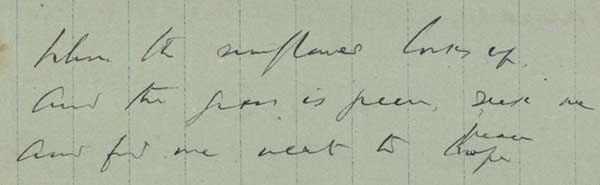 When the sunflower looks up,
And the grass is green, seek me
And find me next to hope
heaven